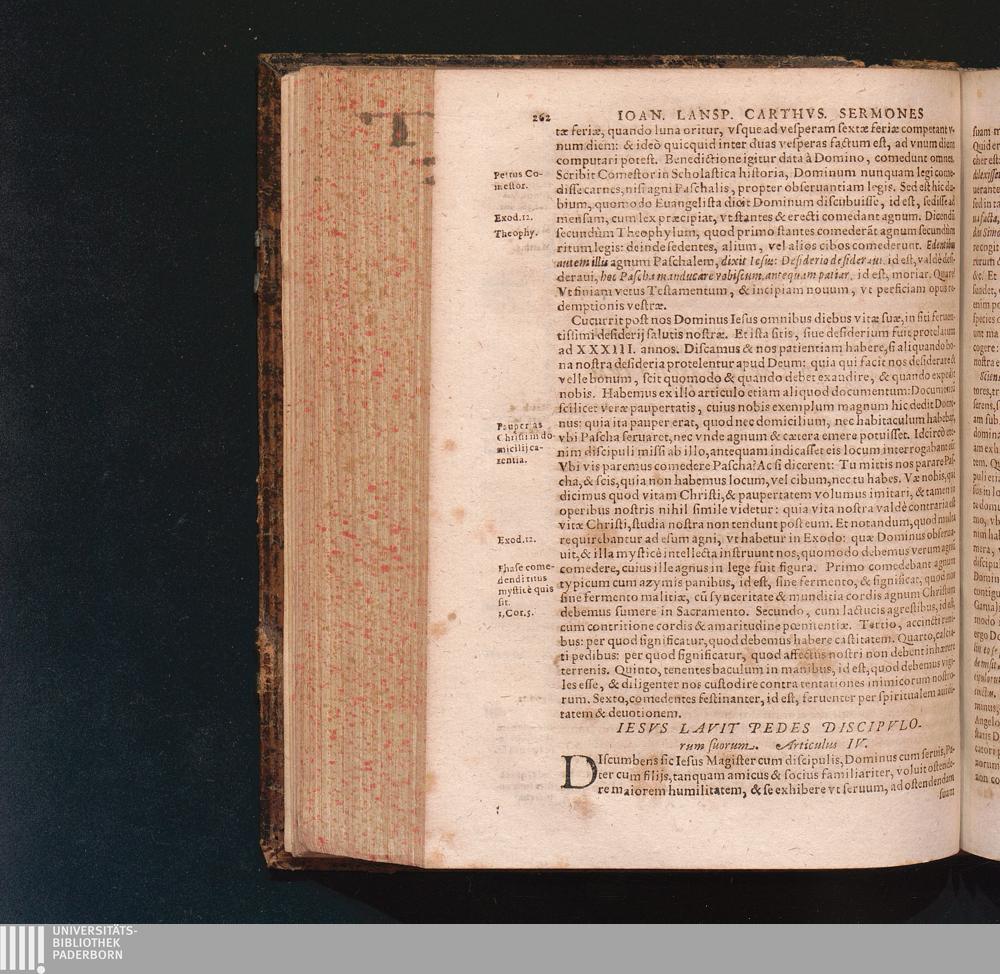 262
IOAN. LANSP. CARTHVS. SERMONES
tæ feriæ, quando luna oritur, vsque ad vesperam sextæ feriæ competant v-
num diem: & ideò quicquid inter duas vesperas factum est, ad vnum diem
computari potest. Benedictione igitur data à Domino, comedunt omnes.
Petrus Co-
mestor.
Scribit Comestor in Scholastica historia, Dominum nunquam legi come-
disse carnes, nisi agni Paschalis, propter obseruantiam legis. Sed est hic du-
bium, quomodo Euangelista dicit Dominum discubuisse, id est, sedisse ad
Exod.12.
mensam, cum lex præcipiat, vt stantes & erecti comedant agnum. Dicendū
Theophy.
secundùm Theophylum, quod primo stantes comederāt agnum secundùm
ritum legis: deinde sedentes, alium, vel alios cibos comederunt. Edentibus
autem illis agnum Paschalem, dixit Iesus: Desiderio desideraui. id est, valdè desi-
deraui, hoc Pascha manducare vobiscum, antequam patiar. id est, moriar. Quare?
Vt finiam vetus Testamentum, & incipiam nouum, vt perficiam opus re-
demptionis vestræ.
Cucurrit post nos Dominus Iesus omnibus diebus vitæ suæ, in siti feruen-
tissimi desiderij salutis nostræ. Et ista sitis, siue desiderium fuit protelatum
ad XXXIII. annos. Discamus & nos patientiam habere, si aliquando bo-
na nostra desideria protelentur apud Deum: quia qui facit nos desiderare &
velle bonum, scit quomodo & quando debet exaudire, & quando expedit
nobis. Habemus ex illo articulo etiam aliquod documentum: Documentū
scilicet veræ paupertatis, cuius nobis exemplum magnum hic dedit Domi-
Paupertas
Christi in do
micilij ca-
rentia.
nus: quia ita pauper erat, quod nec domicilium, nec habitaculum habebat,
vbi Pascha seruaret, nec vnde agnum & cætera emere potuisset. Idcircò ete-
nim discipuli missi ab illo, antequam indicasset eis locum interrogabant eū:
Vbi vis paremus comedere Pascha? Ac si dicerent: Tu mittis nos parare Pas-
cha, & scis, quia non habemus locum, vel cibum, nec tu habes. Væ nobis, qui
dicimus quod vitam Christi, & paupertatem volumus imitari, & tamen in
operibus nostris nihil simile videtur: quia vita nostra valdè contraria est
vitæ Christi, studia nostra non tendunt post eum. Et notandum, quod multa
Exod.12.
requirebantur ad esum agni, vt habetur in Exodo: quæ Dominus obserua-
uit, & illa mysticè intellecta instruunt nos, quomodo debemus verum agnū
Phase come-
dendi ritus
mysticè quis
sit.
1,Cor.5.
comedere, cuius ille agnus in lege fuit figura. Primo comedebant agnum
typicum cum azymis panibus, id est, sine fermento, & significat, quod nos
sine fermento malitiæ, cū synceritate & munditia cordis agnum Christum
debemus sumere in Sacramento. Secundo, cum lactucis agrestibus, id est,
cum contritione cordis & amaritudine pœnitentiæ. Tertio, accincti reni-
bus: per quod significatur, quod debemus habere castitatem. Quarto, calcia-
ti pedibus: per quod significatur, quod affectus nostri non debent inhærere
terrenis. Quinto, tenentes baculum in manibus, id est, quod debemus vigi-
les esse, & diligenter nos custodire contra tentationes inimicorum nostro-
rum. Sexto, comedentes festinanter, id est, feruenter per spiritualem auidi-
tatem & deuotionem.
IESVS LAVIT PEDES DISCIPVLO-
rum suorum. Articulus IV.
DIscumbens sic Iesus Magister cum discipulis, Dominus cum seruis, Pa-
ter cum filijs, tanquam amicus & socius familiariter, voluit ostende-
re maiorem humilitatem, & se exhibere vt seruum, ad ostendendam
suam
UNIVERSITÄTS-
BIBLIOTHEK
PADERBORN